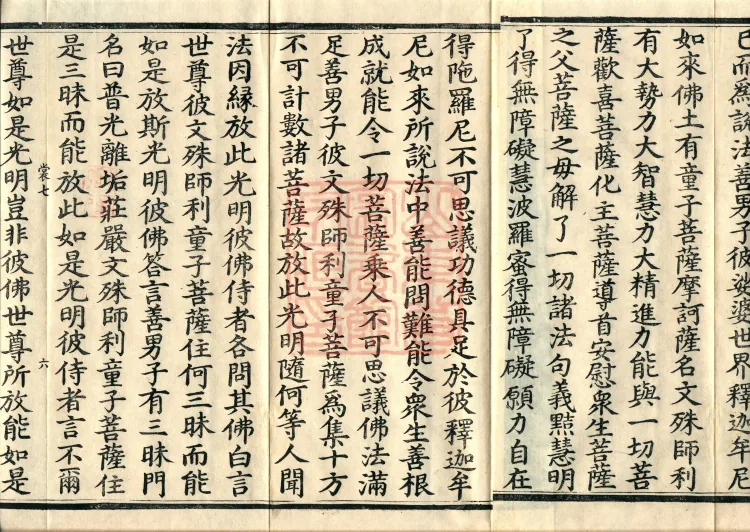 已而爲說法善男子彼娑婆世界釋迦牟尼
如來佛土有童子菩薩摩訶薩名文殊師利
有大勢力大智慧力大精進力能與一切菩
薩歡喜菩薩化主菩薩導首安慰衆生菩薩
之父菩薩之母解了一切諸法句義黠慧明
了得無障礙慧波羅蜜得無障礙願力自在
得陁羅尼不可思議功德具足於彼釋迦牟
尼如來所說法中善能問難能令衆生善根
成就能令一切菩薩乘人不可思議佛法滿
足善男子彼文殊師利童子菩薩爲集十方
不可計數諸菩薩故放此光明隨何等人聞
法因緣放此光明彼佛侍者各問其佛白言
世尊彼文殊師利童子菩薩住何三昧而能
如是放斯光明彼佛荅言善男子有三昧門
名曰普光離垢莊嚴文殊師利童子菩薩住
是三昧而能放此如是光明彼侍者言不爾
裳七
六
世尊如是光明豈非彼佛世尊所放能如是